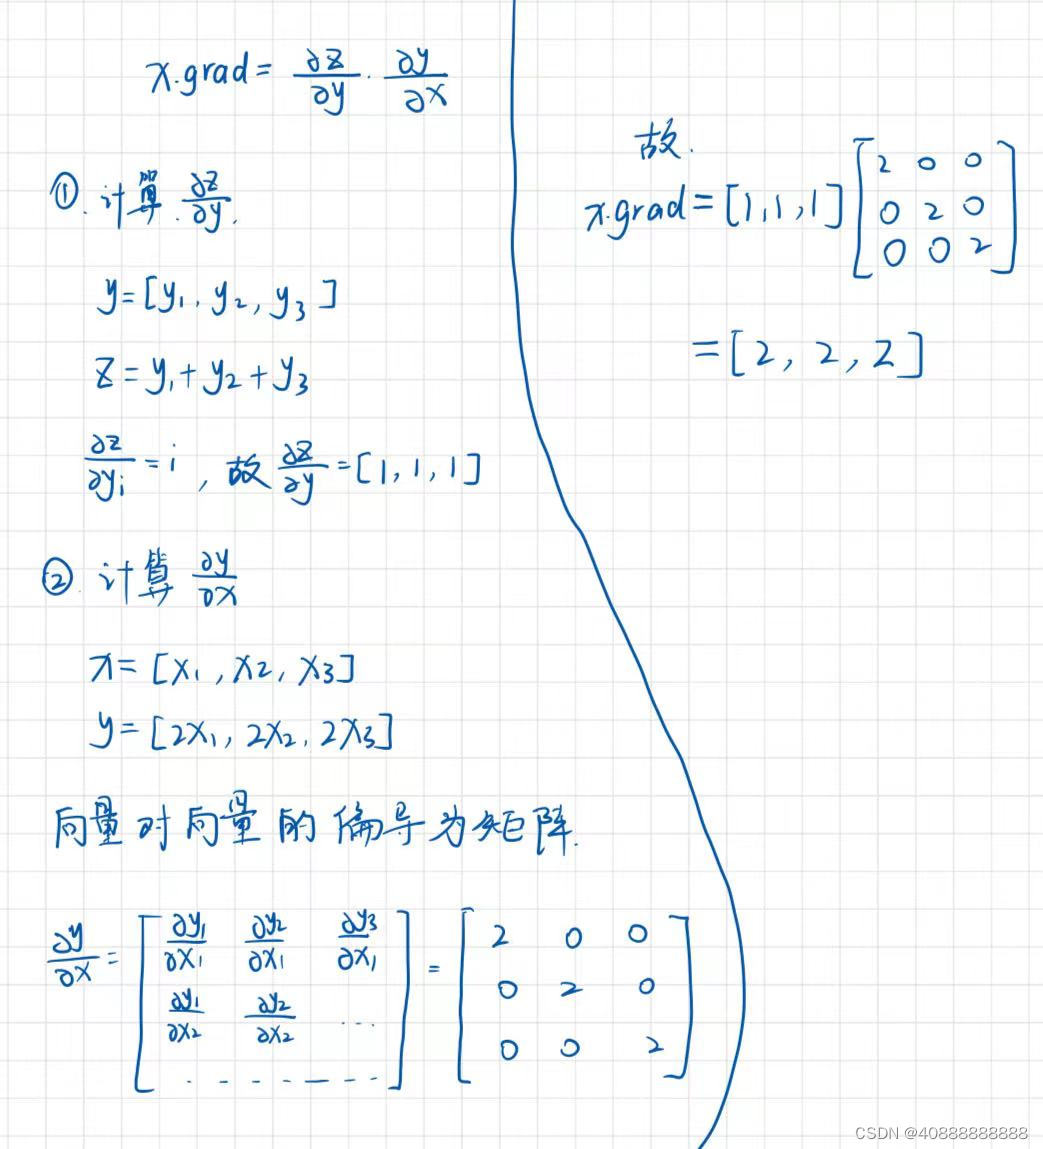 x.grad = ∂z/∂y · ∂y/∂x
①. 计算 ∂z/∂y.
y = [y₁, y₂, y₃]
z = y₁ + y₂ + y₃
∂z/∂yᵢ = i, 故 ∂z/∂y = [1, 1, 1]
②. 计算 ∂y/∂x
x = [x₁, x₂, x₃]
y = [2x₁, 2x₂, 2x₃]
向量对向量的偏导为矩阵.
∂y/∂x = [ ∂y₁/∂x₁ ∂y₂/∂x₁ ∂y₃/∂x₁ ] = [ 2 0 0 ]
[ ∂y₁/∂x₂ ∂y₂/∂x₂ ... ] [ 0 2 0 ]
[ ........ ] [ 0 0 2 ]
故.
x.grad = [1, 1, 1] [ 2 0 0 ]
[ 0 2 0 ]
[ 0 0 2 ]
= [2, 2, 2]
CSDN @40888888888